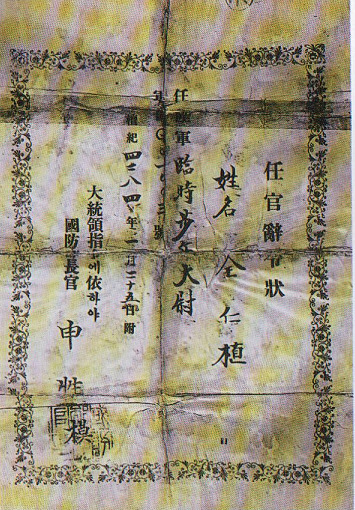 任官辭令狀
姓名 全仁植
任陸軍臨時步兵大尉
檀紀四二八四年一月二十五日附
大統領指令에依하야
國防部長官 申性模